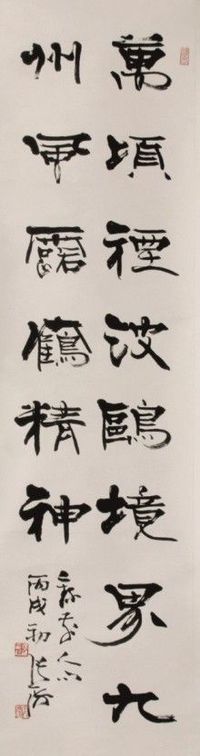 萬頃煙波鷗境界九
州風露鶴精神
丙戌初